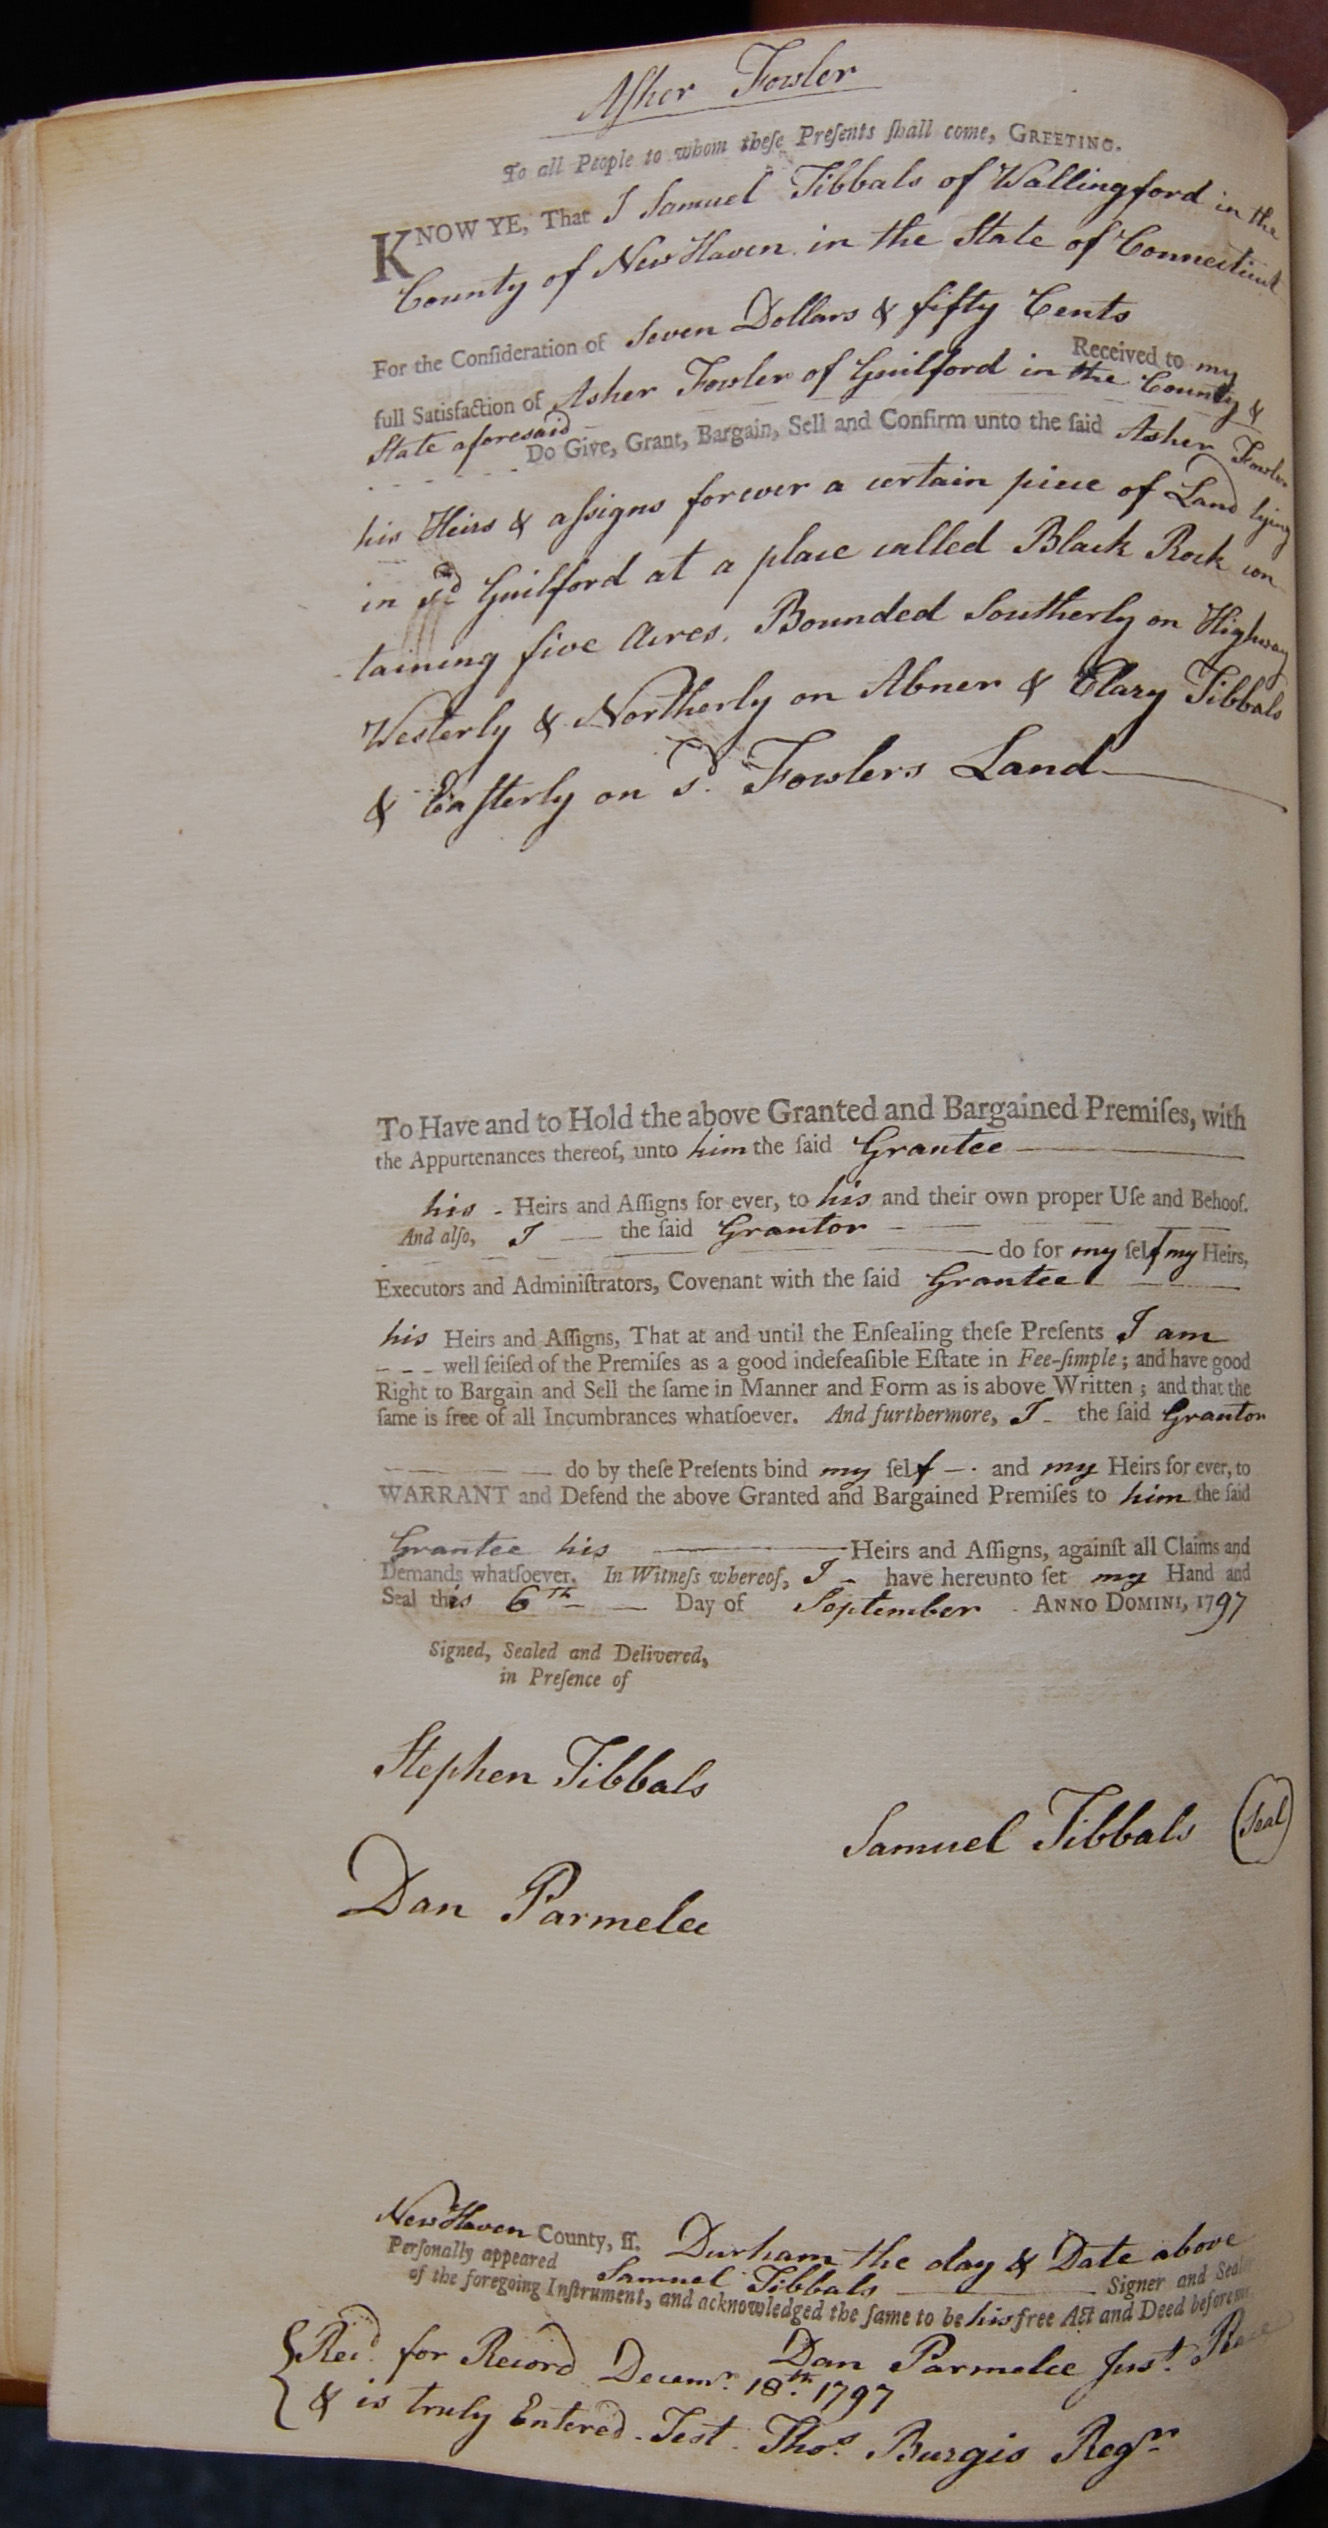 Aſher Fowler
To all People to whom theſe Preſents ſhall come, GREETING.
KNOW YE, That I Samuel Tibbals of Wallingford in the
County of New Haven in the State of Connecticut
For the Conſideration of Seven Dollars & fifty Cents
Received to my
full Satisfaction of Asher Fowler of Guilford in the County &
State aforesaid Do Give, Grant, Bargain, Sell and Confirm unto the ſaid Asher Fowler
his Heirs & aſsigns forever a certain piece of Land lying
in sd Guilford at a place called Black Rock con
taining five Acres. Bounded Southerly on Highway
Westerly & Northerly on Abner & Clary Tibbals
& Eaſterly on sd. Fowlers Land
To Have and to Hold the above Granted and Bargained Premiſes, with
the Appurtenances thereof, unto him the ſaid Grantee
his Heirs and Aſſigns for ever, to his and their own proper Uſe and Behoof.
And alſo, I the ſaid Grantor
do for my ſelf my Heirs,
Executors and Adminiſtrators, Covenant with the ſaid Grantee
his Heirs and Aſſigns, That at and until the Enſealing theſe Preſents I am
well ſeiſed of the Premiſes as a good indefeaſible Eſtate in Fee-ſimple; and have good
Right to Bargain and Sell the ſame in Manner and Form as is above Written; and that the
ſame is free of all Incumbrances whatſoever. And furthermore, I the ſaid Grantor
do by theſe Preſents bind my ſelf and my Heirs for ever, to
WARRANT and Defend the above Granted and Bargained Premiſes to him the ſaid
Grantee his Heirs and Aſſigns, againſt all Claims and
Demands whatſoever. In Witneſs whereof, I have hereunto ſet my Hand and
Seal this 6th Day of September ANNO DOMINI, 1797
Signed, Sealed and Delivered,
in Preſence of
Stephen Tibbals
Samuel Tibbals (Seal)
Dan Parmelee
New Haven County, ſſ. Durham the day & Date above
Perſonally appeared Samuel Tibbals Signer and Sealer
of the foregoing Inſtrument, and acknowledged the ſame to be his free Act and Deed before me.
Dan Parmelee Just. Peace
Recd. for Record Decemr. 18th. 1797
& is truly Entered. Test. Thos. Burgis Regr